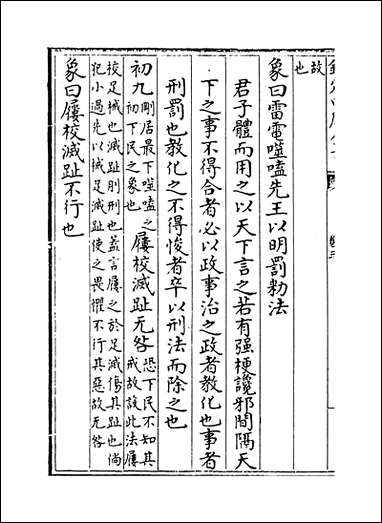 故
也
象曰雷電噬嗑先王以明罰勑法
君子體而用之以天下言之若有强梗讒邪間隔天
下之事不得合者必以政事治之政者教化也事者
刑罰也教化之不得悛者卒以刑法而除之也
初九剛居最下噬嗑之
初下民之象也屨校滅趾无咎恐下民不知其
戒故設此法屨
校足械也滅趾刖刑也葢言屨之於足滅傷其趾也倘
犯小過先以械足滅趾使之畏懼不行其惡故无咎
象曰屨校滅趾不行也